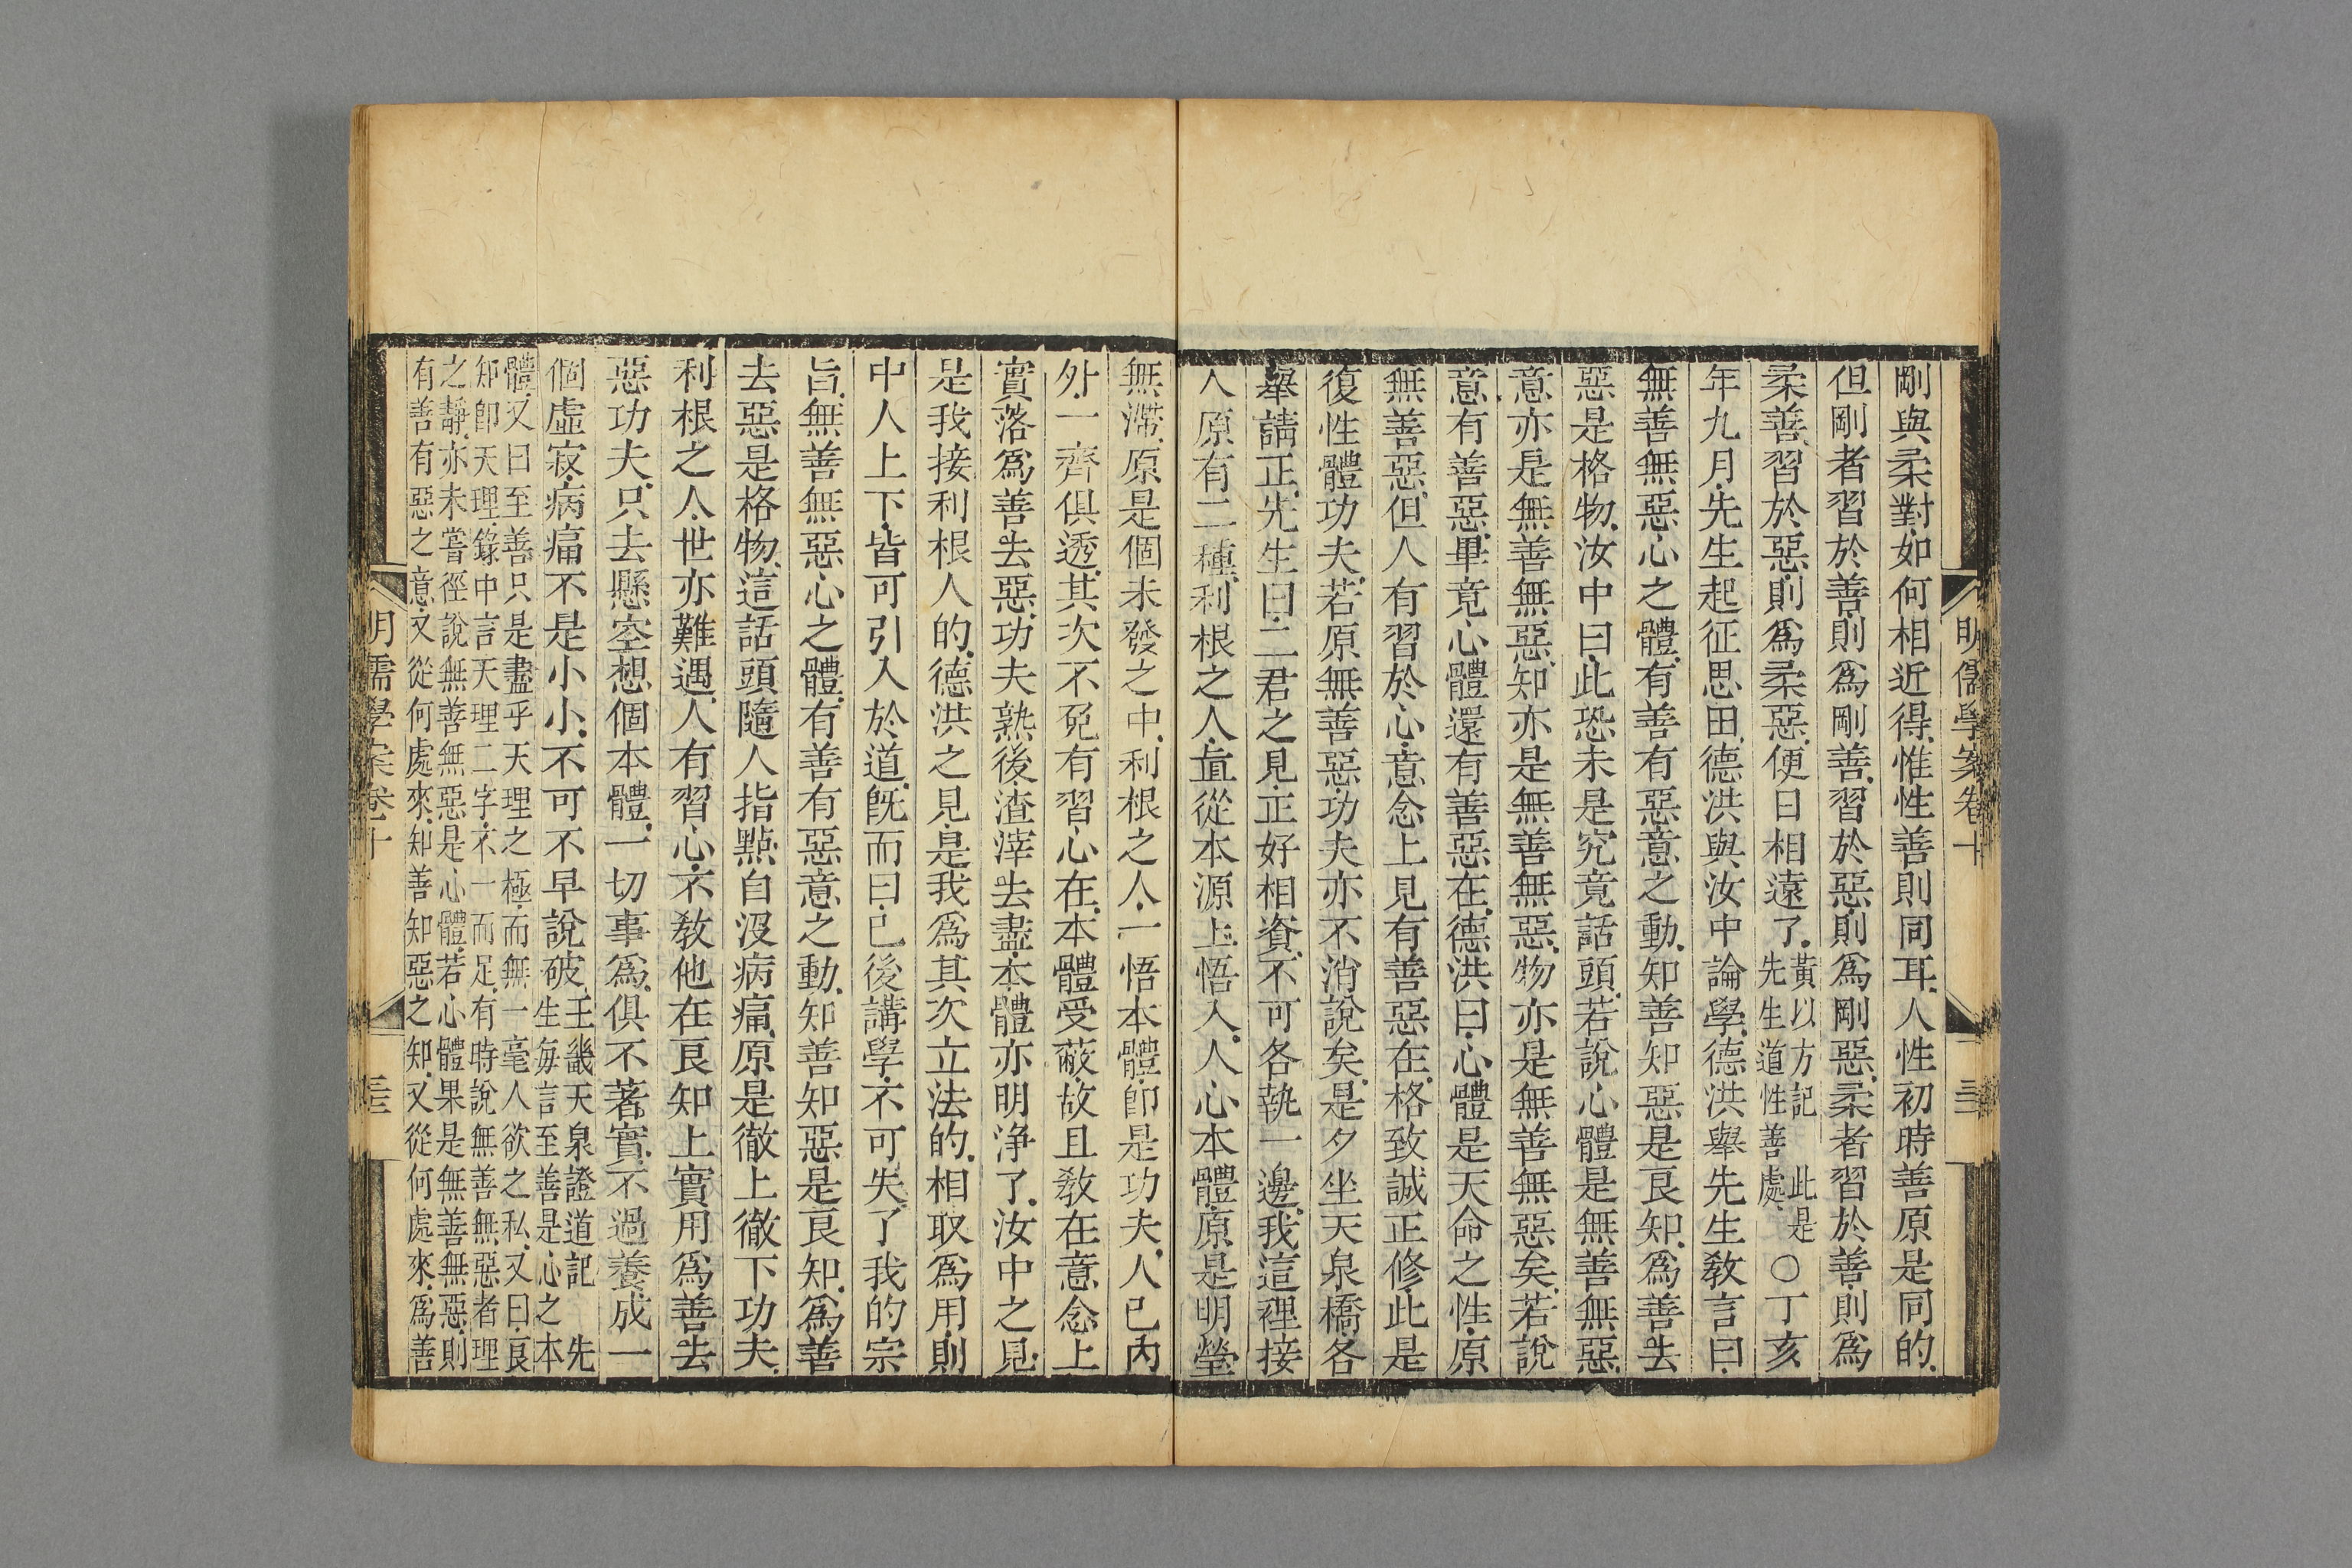 明儒學案卷十
剛與柔對.如何相近得.惟性善則同耳.人性初時善原是同的.
但剛者習於善.則爲剛善.習於惡.則爲剛惡.柔者習於善.則爲
柔善.習於惡.則爲柔惡.便日相遠了.黃以方記 此是先生道性善處.○丁亥
年九月.先生起征思田.德洪與汝中論學.德洪舉先生敎言曰.
無善無惡心之體.有善有惡意之動.知善知惡是良知.爲善去
惡是格物.汝中曰.此恐未是究竟話頭.若說心體是無善無惡.
意亦是無善無惡.知亦是無善無惡.物亦是無善無惡矣.若說
意有善惡.畢竟心體還有善惡在.德洪曰.心體是天命之性.原
無善惡.但人有習於心.意念上見有善惡在.格致誠正修.此是
復性體功夫.若原無善惡.功夫亦不消說矣.是夕坐天泉橋.各
舉請正.先生曰.二君之見.正好相資.不可各執一邊.我這裡接
人原有二種.利根之人.直從本源上悟入.人心本體.原是明瑩
無滯.原是個未發之中.利根之人.一悟本體.卽是功夫.人已內
外一齊俱透.其次不免有習心在.本體受蔽.故且敎在意念上
實落爲善去惡.功夫熟後.渣滓去盡.本體亦明淨了.汝中之見.
是我接利根人的.德洪之見.是我爲其次立法的.相取爲用.則
中人上下.皆可引入於道.旣而曰.已後講學.不可失了我的宗
旨.無善無惡心之體.有善有惡意之動.知善知惡是良知.爲善
去惡是格物.這話頭隨人指點.自沒病痛.原是徹上徹下功夫.
利根之人.世亦難遇.人有習心.不敎他在良知上實用爲善去
惡功夫.只去懸空想個本體.一切事爲.俱不著實.不過養成一
個虛寂.病痛不是小小.不可不早說破.王畿天泉證道記 先
生每言至善是心之本
體.又曰至善只是盡乎天理之極.而無一毫人欲之私.又曰良
知卽天理.錄中言天理二字.不一而足.有時說無善無惡者理
之靜.亦未嘗徑說無善無惡是心體.若心體果是無善無惡.則
有善有惡之意.又從何處來.知善知惡之知.又從何處來.爲善
明儒學案卷十